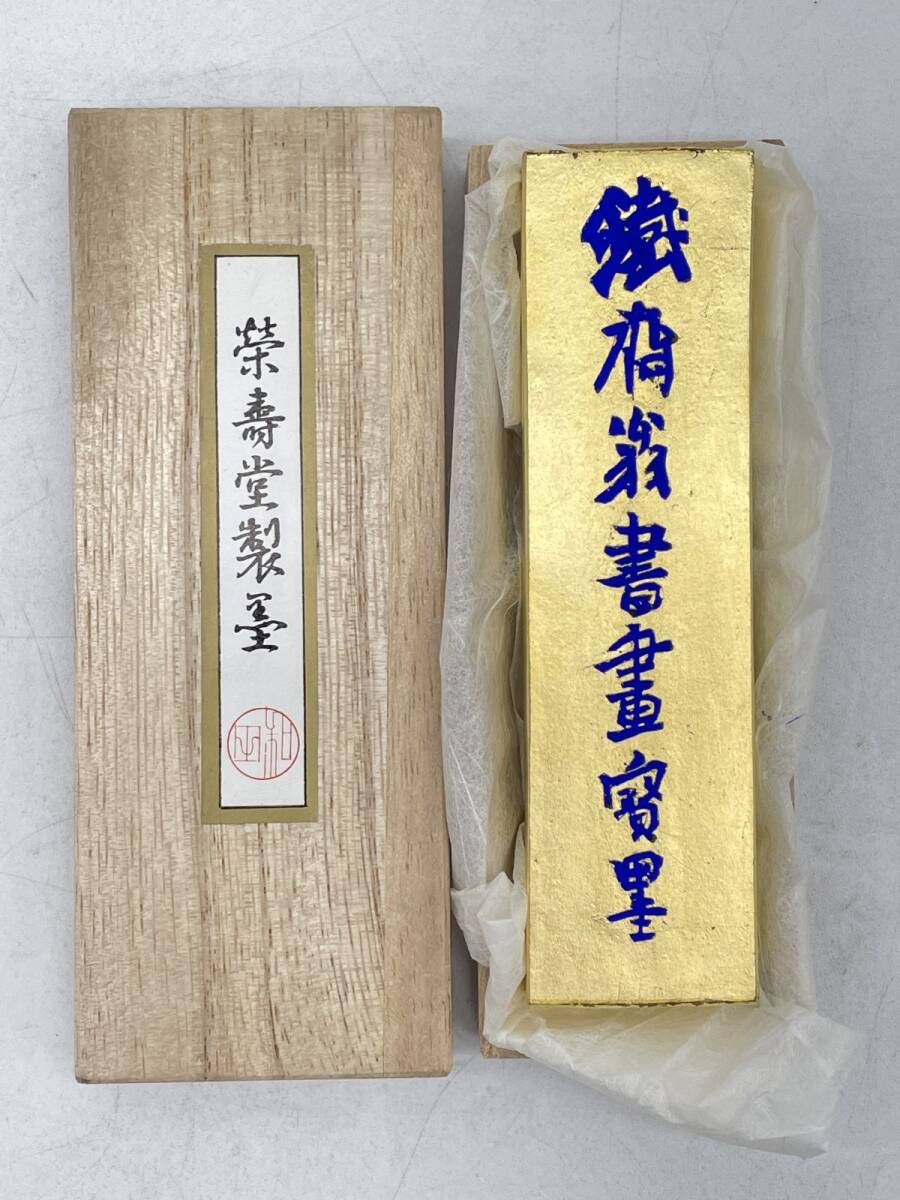 榮壽堂製墨
鐵斎翁書畫寳墨